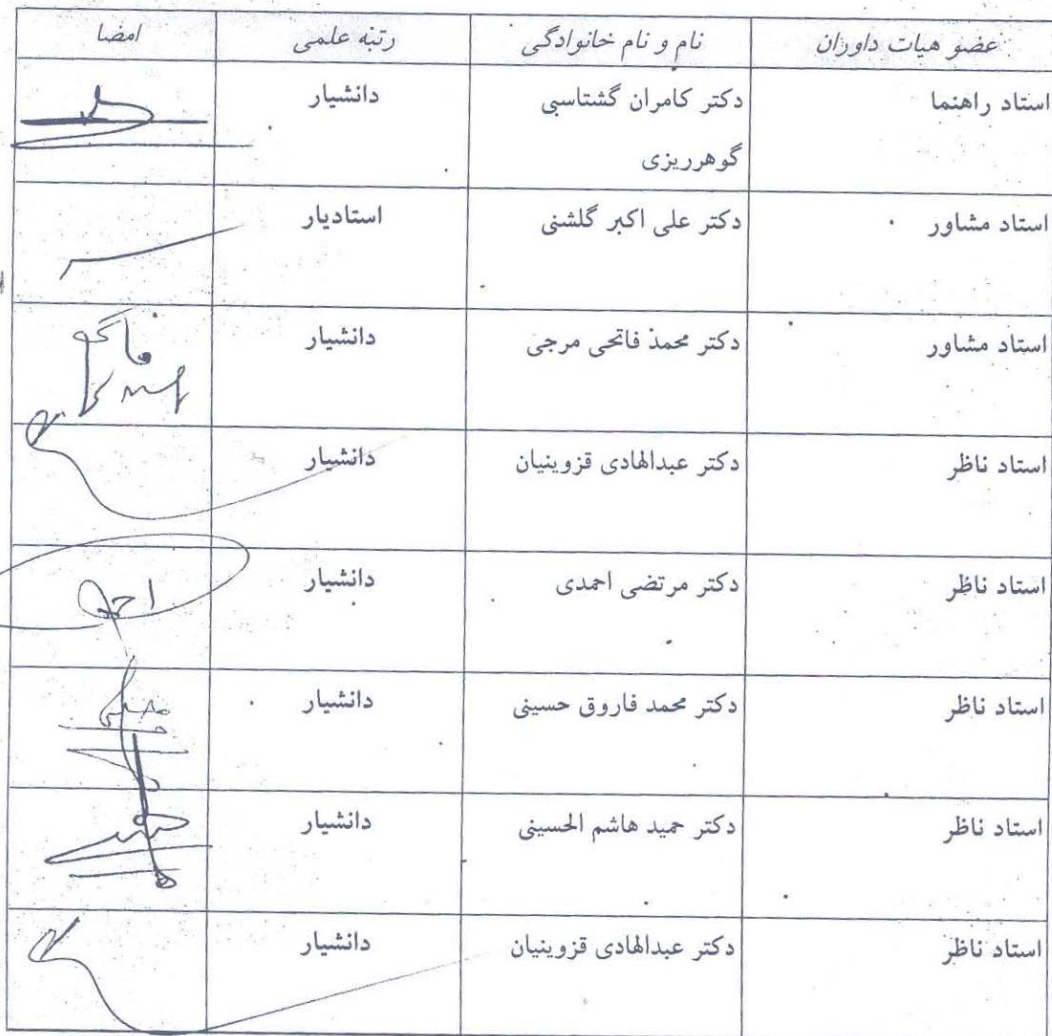 عضو هیات داوران نام و نام خانوادگی رتبه علمی امضا
استاد راهنما دکتر کامران گشتاسبی دانشیار
گوهرریزی
استاد مشاور دکتر علی اکبر گلشنی استادیار
استاد مشاور دکتر محمد فاتحی مرجی دانشیار
استاد ناظر دکتر عبدالهادی قزوینیان دانشیار
استاد ناظر دکتر مرتضی احمدی دانشیار
استاد ناظر دکتر محمد فاروق حسینی دانشیار
استاد ناظر دکتر حمید هاشم الحسینی دانشیار
استاد ناظر دکتر عبدالهادی قزوینیان دانشیار